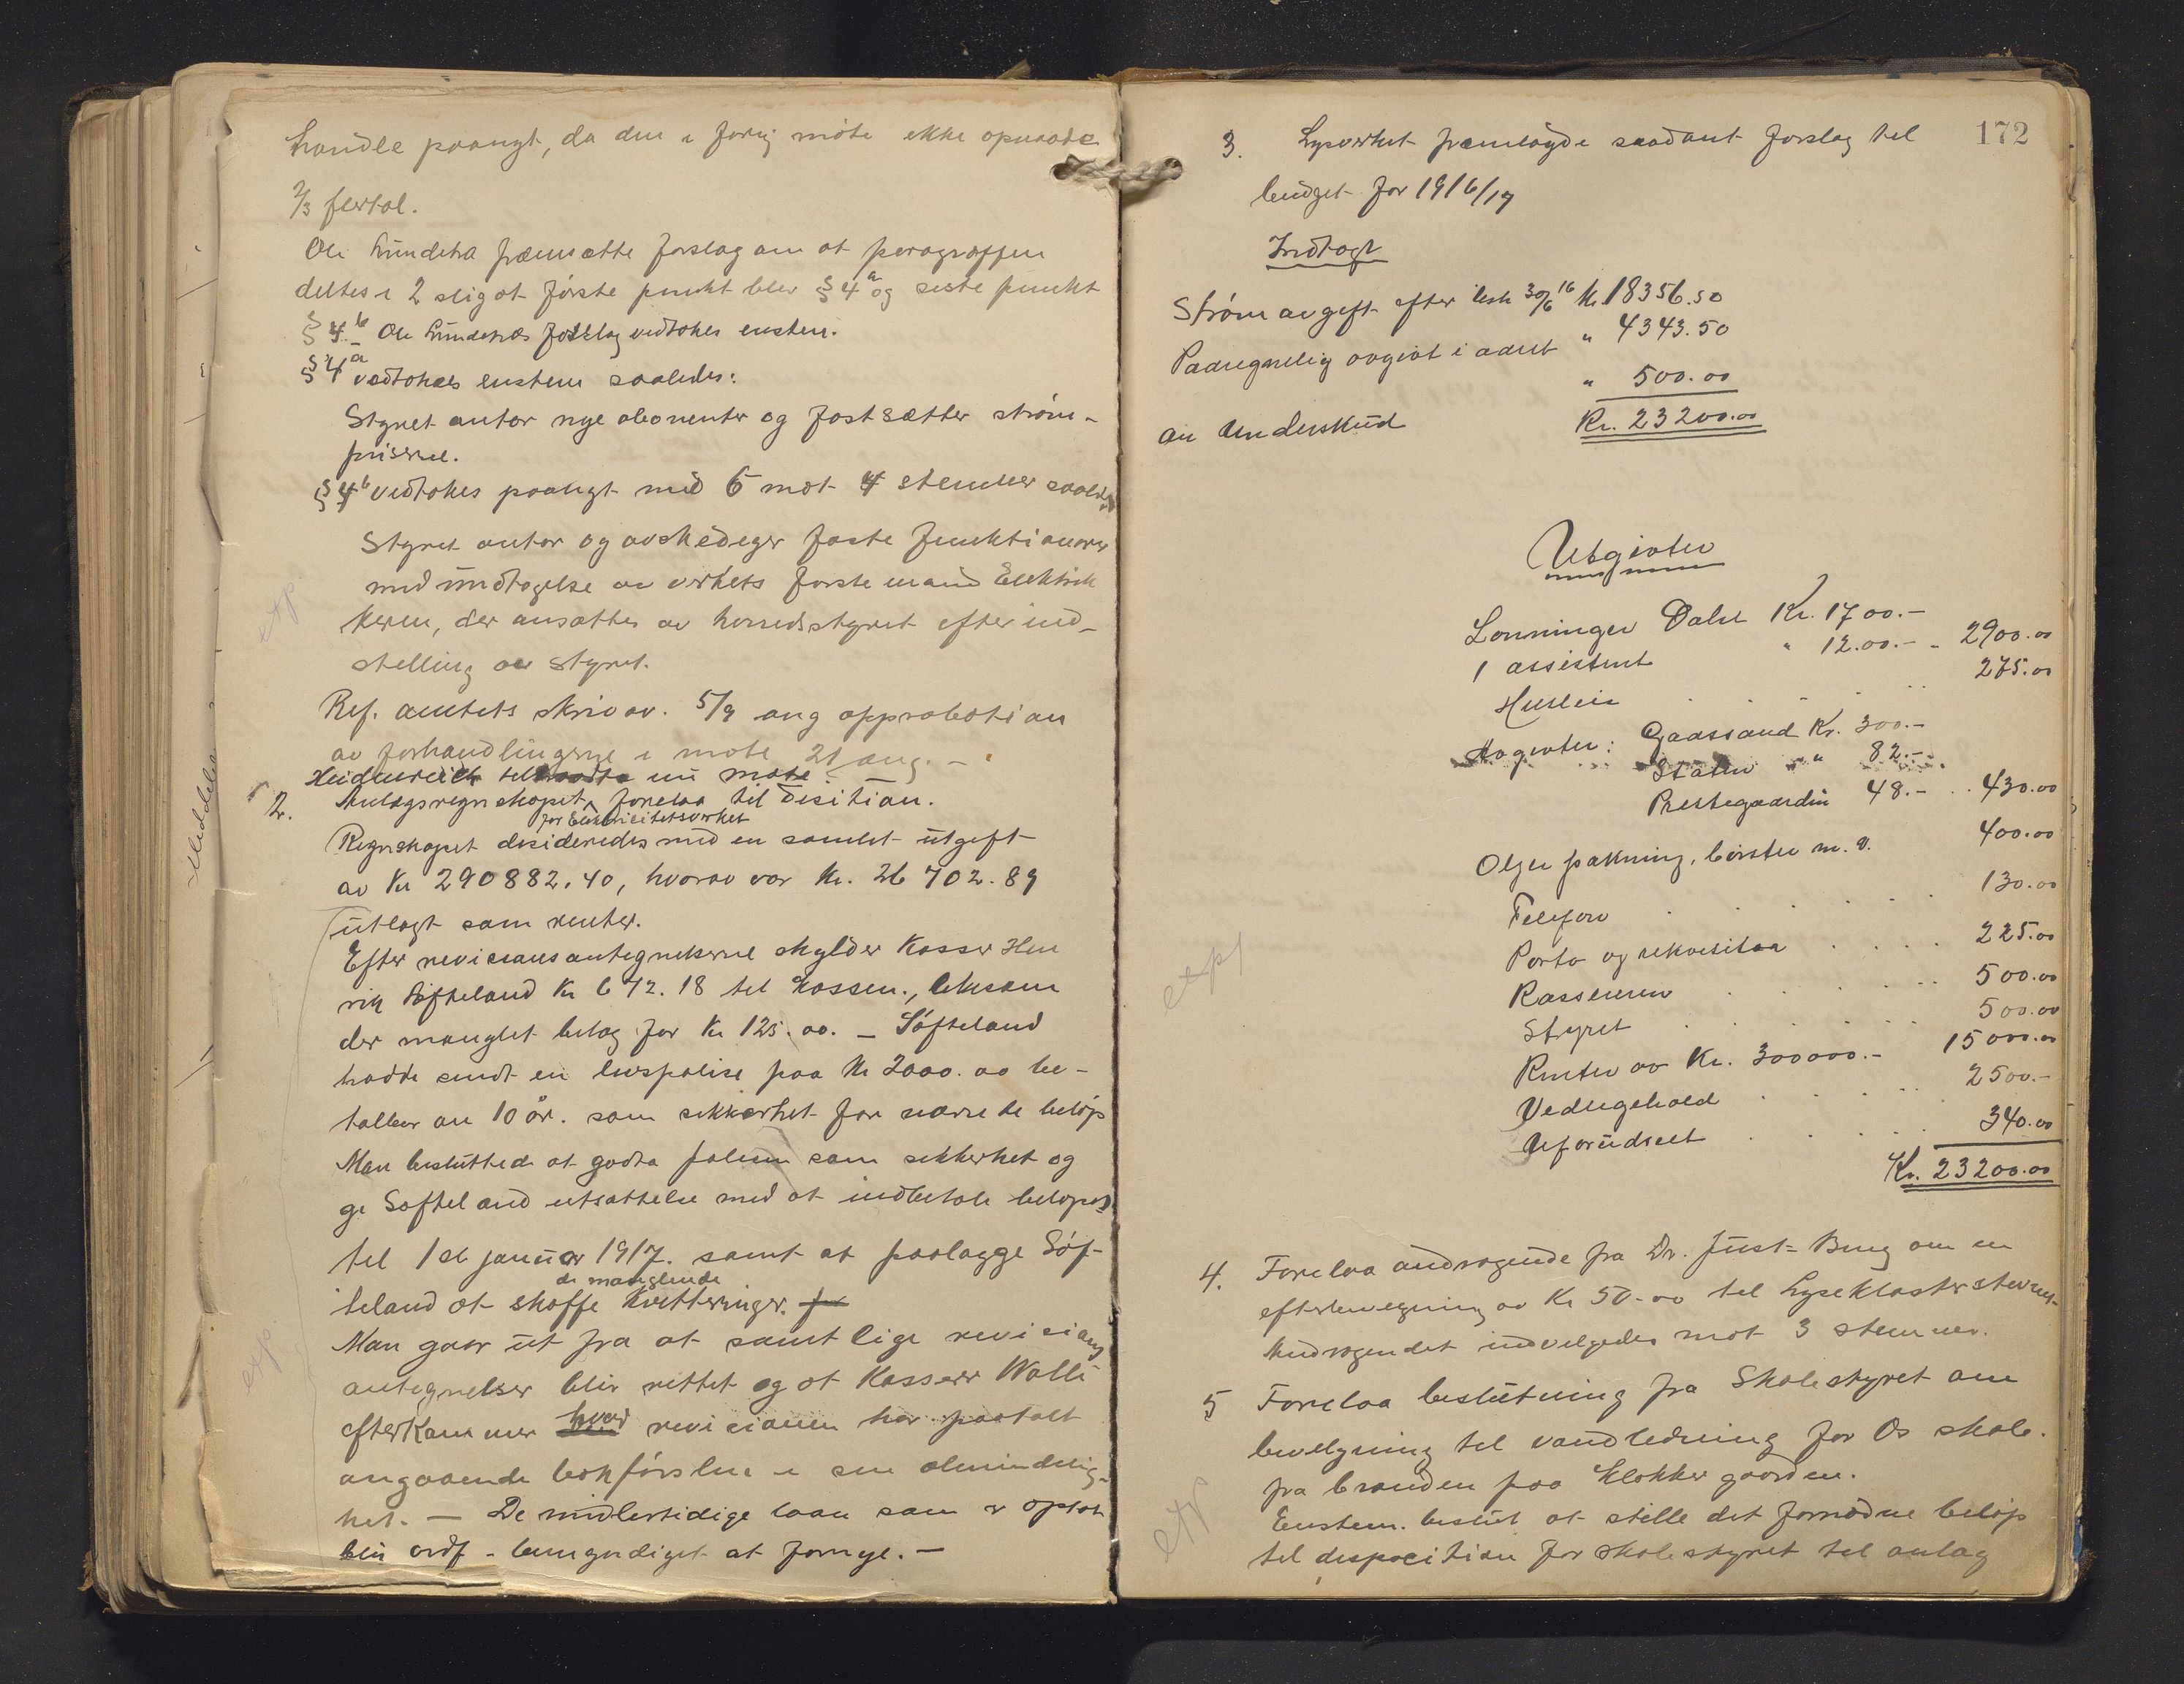 handle paanyt, da den i forrig møte ikke opnaade
2/3 flertal.
Ole Lundetræ fremsatte forslag om at paragraffen
deltes i 2 slig at første punkt blev § 4a og siste punkt
§ 4b Ole Lundetræs forslag vedtokes enstem.
§ 4a vedtokes enstem saaledes:
Styret antar nye abonenter og fastsætter strøm-
priserne.
§ 4b vedtokes paanyt med 6 mot 4 stemmer saaledes
Styret antar og avskediger faste funktionærer
med undtagelse av verkets første mand Elektrik
keren, der ansættes av herredsstyret efter ind-
stilling av styret.
Ref. amtets skriv av. 5/9 ang approbation
av forhandlingerne i møte 21 aug. –
Heidenreich tiltraadte nu møte.
2. Anlægsregnskapet forelaa til desition.
for Elektricitetsverket
Regnskapet desideredes med en samlet utgift
av Kr 290882.40, hvorav var Kr. 26702.89
utlagt som renter.
Efter revisionsantegnelserne skylder Kasser Hen
rik Søfteland Kr 672.18 til kassen., likesom
der manglet bilag for Kr 125.00. – Søfteland
hadde sendt en livspolise paa Kr 2000.00 be-
talbar om 10 år. som sikkerhet for nævnte beløp
Man besluttede at godta polisen som sikkerhet og
gi Søfteland utsættelse med at indbetale beløpet
til 1ste januar 1917. samt at paalægge Søf-
de manglende
teland at skaffe kvitteringer.
Man gaar ut fra at samtlige revisions
antegnelser blir rettet og at Kasserer Walle
efterkommer hvad revisionen har paatalt
angaaende bokførslen i sin almindelig-
het. – De midlertidige laan som er optat
blir ordf. bemyndiget at fornye. –
172
3. Lysverket fremlagde saadant forslag til
budget for 1916/17
Indtægt
Strøm avgift efter liste 30/6 16 Kr. 18356.50
Paaregnelig avgivt i aaret " 4343.50
" 500.00
an Underskud Kr. 23200.00
Utgivter
Lønninger Dale Kr. 1700.–
1 assistent " 1200.– - 2900.00
Husleie 275.00
Avgivter: Gaassand Kr. 300.–
Stølen " 82.–
Prestegaarden 48.– 430.00
Oljer pakning, børster m. v. 400.00
Telefon 130.00
Porto og rekvisita 225.00
Kasseren 500.00
Styret 500.00
Renter av Kr. 300000.– 15000.00
Vedligehold 2500.–
Uforudseet 340.00
Kr. 23200.00
4. Forelaa andragende fra Dr. Just-Bing om en
efterbevilgning av Kr 50.00 til Lyseklosterstevnet.
Andragendet indvilgedes mot 3 stemmer.
5 Forelaa beslutning fra Skolestyret om
bevilgning til vandledning for Os skole.
fra brønden paa Klokkergaarden.
Enstem. beslut at stille det fornødne beløp
til disposition for skolestyret til anlæg